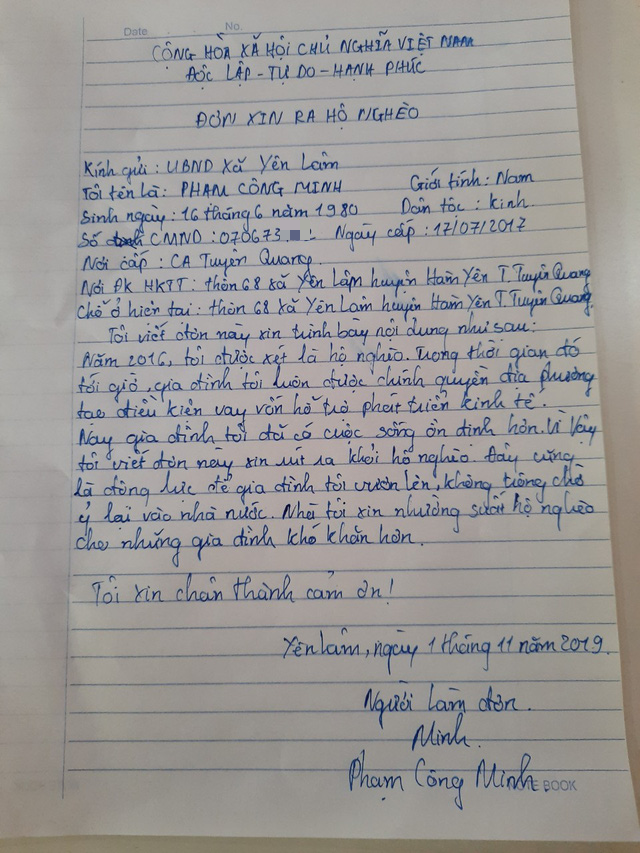 Date No.
CỘNG HÒA XÃ HỘI CHỦ NGHĨA VIỆT NAM
ĐỘC LẬP - TỰ DO - HẠNH PHÚC
ĐƠN XIN RA HỘ NGHÈO
Kính gửi : UBND Xã Yên Lâm
Tôi tên là : PHẠM CÔNG MINH Giới tính : Nam
Sinh ngày : 16 tháng 6 năm 1980 Dân tộc : Kinh.
Số CMND : 070673 Ngày cấp : 17/07/2017
Nơi cấp : CA Tuyên Quang.
Nơi ĐK HKTT : thôn 68 xã Yên Lâm huyện Hàm Yên T. Tuyên Quang
Chỗ ở hiện tại : thôn 68 Xã Yên Lâm huyện Hàm Yên T. Tuyên Quang.
Tôi viết đơn này xin trình bày nội dung như sau :
Năm 2016, tôi được xét là hộ nghèo. Trong thời gian đó
tới giờ, gia đình tôi luôn được chính quyền địa phương
tạo điều kiện vay vốn hỗ trợ phát triển kinh tế.
Nay gia đình tôi đã có cuộc sống ổn định hơn. Vì vậy
tôi viết đơn này xin rút ra khỏi hộ nghèo. Đây cũng
là động lực để gia đình tôi vươn lên, không trông chờ
ỷ lại vào nhà nước. Nhà tôi xin nhường suất hộ nghèo
cho những gia đình khó khăn hơn.
Tôi xin chân thành cảm ơn !
Yên Lâm, ngày 1 tháng 11 năm 2019.
Người làm đơn.
Minh.
Phạm Công Minh.
NOTE BOOK